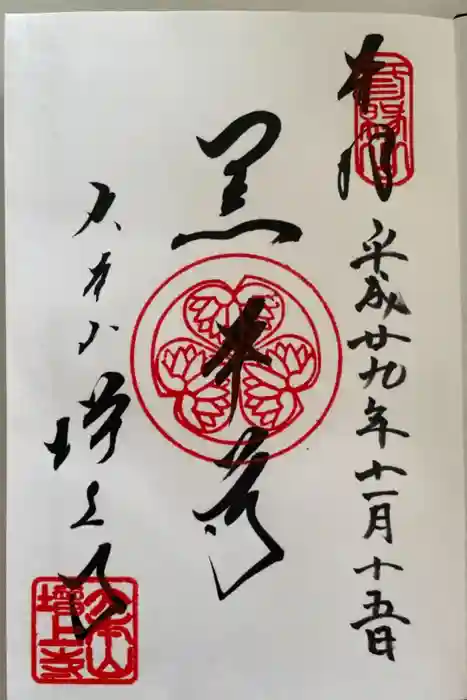 奉拝
平成廿九年十一月十五日
黒本尊
大本山増上寺
大本山
増上寺